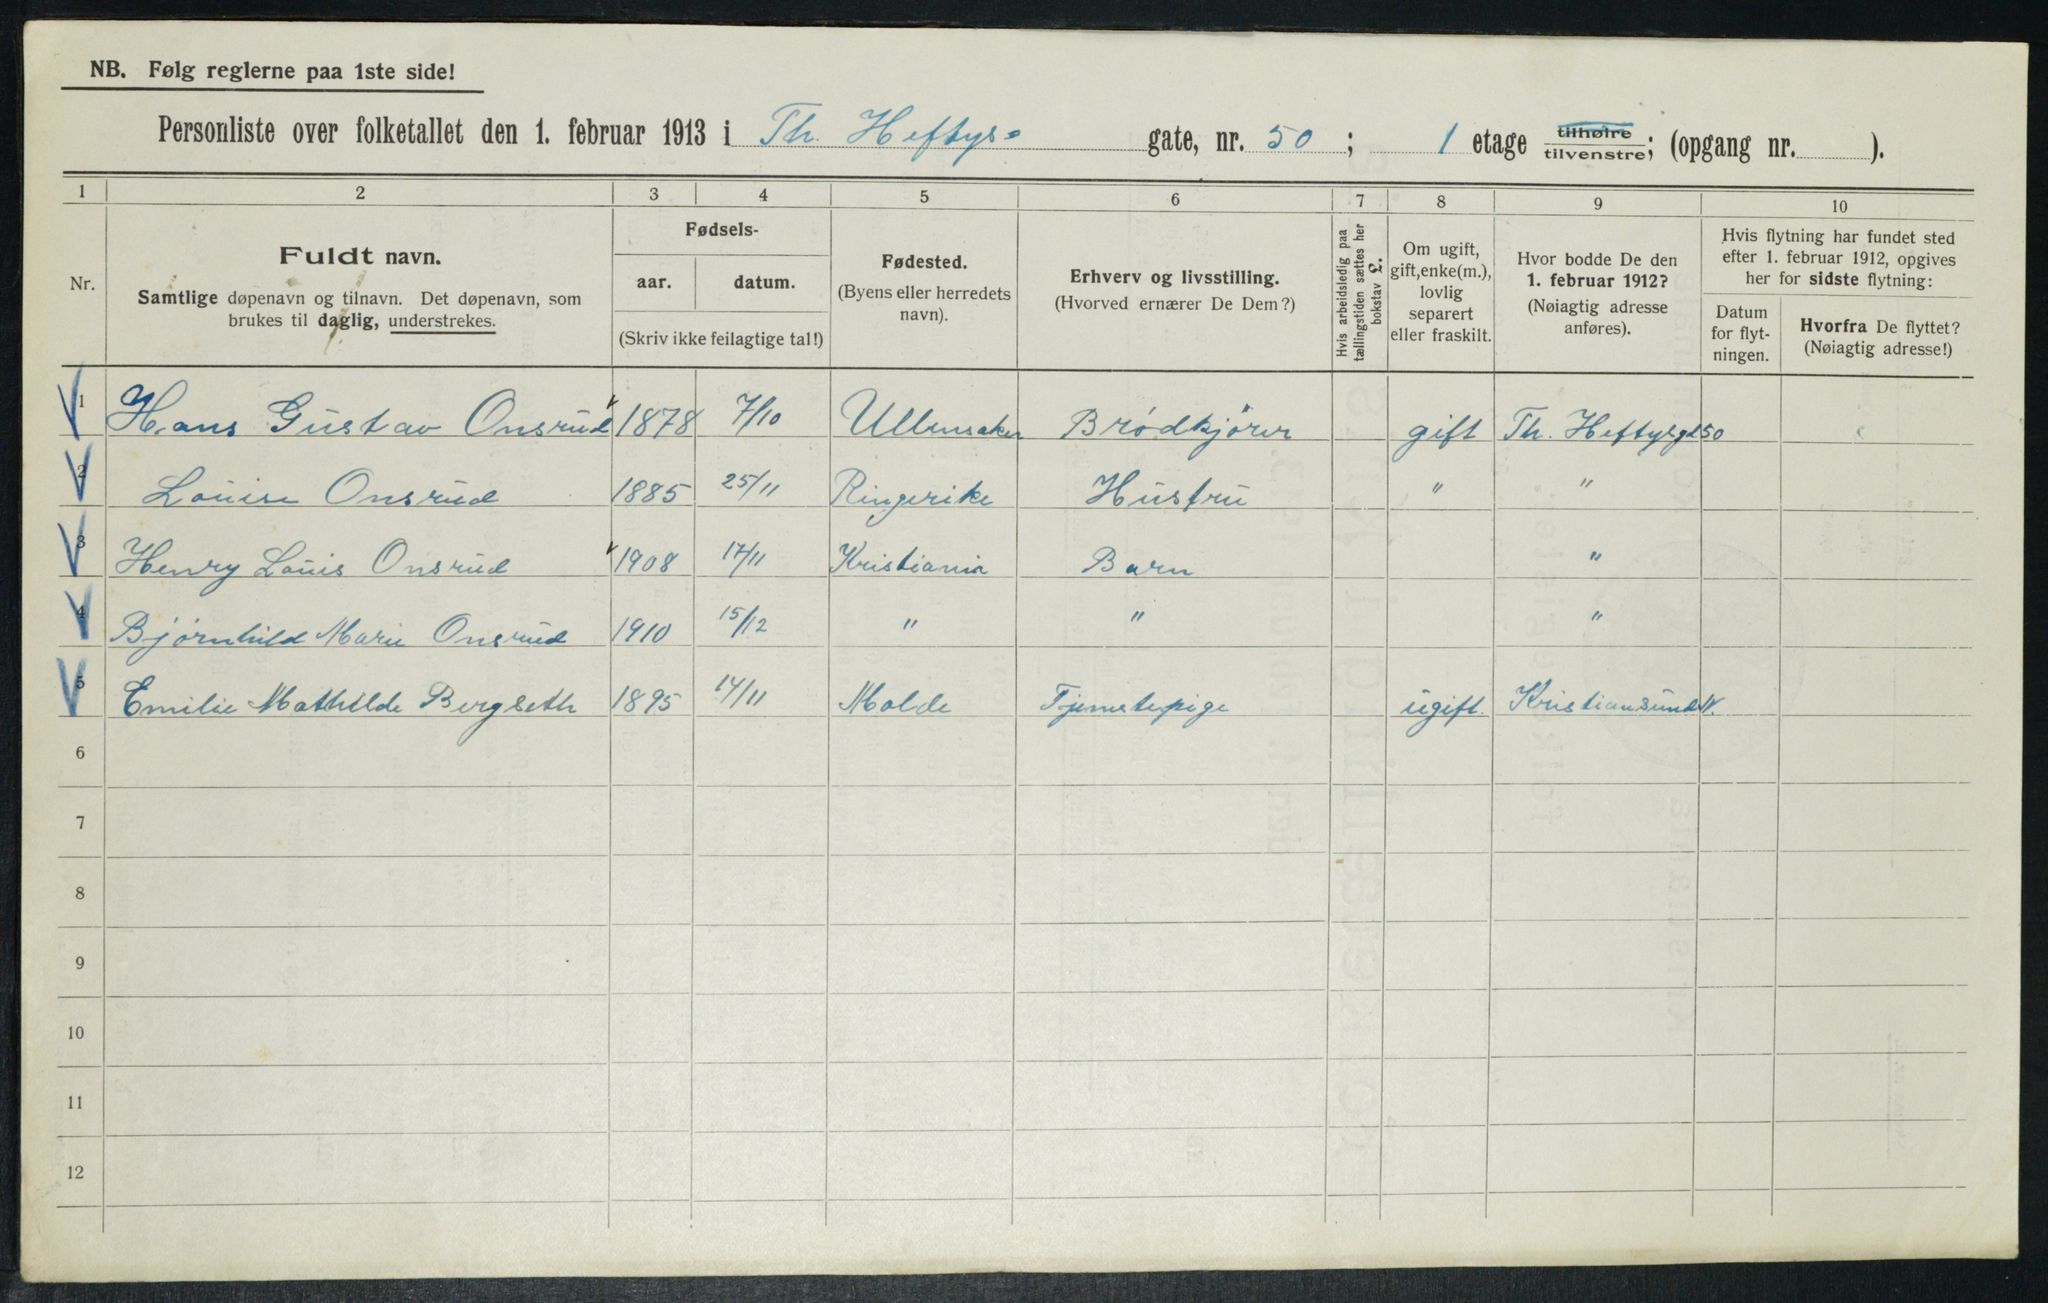 NB. Følg reglerne paa 1ste side!
Personliste over folketallet den 1. februar 1913 i Th. Heftys- gate, nr. 50; 1 etage tilhøire/tilvenstre; (opgang nr. ).
1 2 3 4 5 6 7 8 9 10
Nr.
Fuldt navn.
Samtlige døpenavn og tilnavn. Det døpenavn, som
brukes til daglig, understrekes.
Fødsels-
aar. datum.
(Skriv ikke feilagtige tal!)
Fødested.
(Byens eller herredets
navn).
Erhverv og livsstilling.
(Hvorved ernærer De Dem?)
Hvis arbeidsledig paa
tællingstiden sættes her
bokstav L.
Om ugift,
gift, enke(m.),
lovlig
separert
eller fraskilt.
Hvor bodde De den
1. februar 1912?
(Nøiagtig adresse
anføres).
Hvis flytning har fundet sted
efter 1. februar 1912, opgives
her for sidste flytning:
Datum
for flyt-
ningen.
Hvorfra De flyttet?
(Nøiagtig adresse!)
1 Hans Gustav Onsrud 1878 7/10 Ullensaker Brødkjører gift Th. Heftysgt 50
2 Louise Onsrud 1885 25/11 Ringerike Hustru " "
3 Henry Louis Onsrud 1908 17/11 Kristiania Barn "
4 Bjørnhild Marie Onsrud 1910 15/12 " " "
5 Emilie Mathilde Bergseth 1895 14/11 Molde Tjenestepige ugift. Kristiansund N.
6
7
8
9
10
11
12